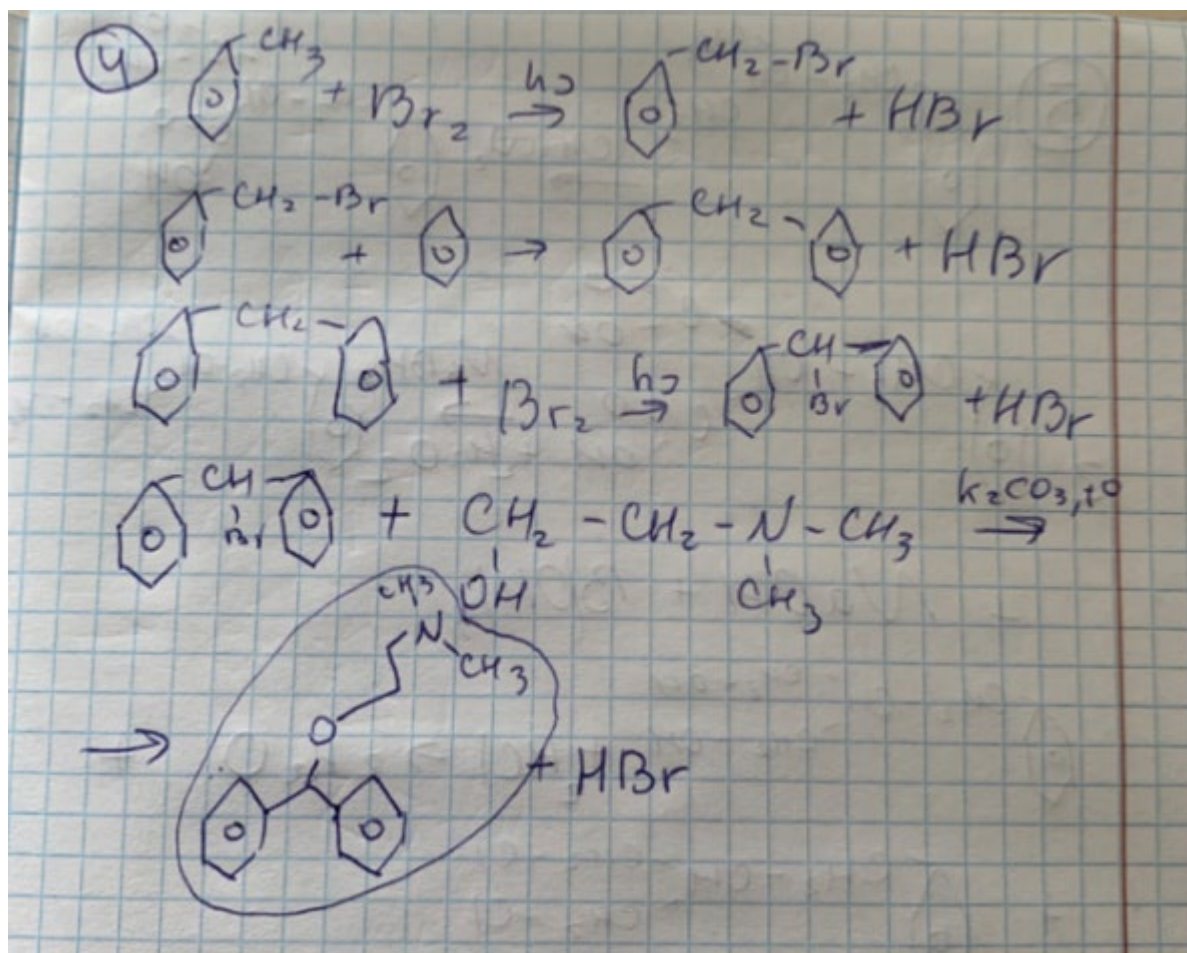 4 CH3 + Br2 hν → CH2-Br + HBr
CH2-Br + → CH2- + HBr
CH2- + Br2 hν → CH- Br + HBr
CH- Br + CH2-CH2-N-CH3 K2CO3, t° →
OH CH3
CH3
N
CH3
O
→ + HBr